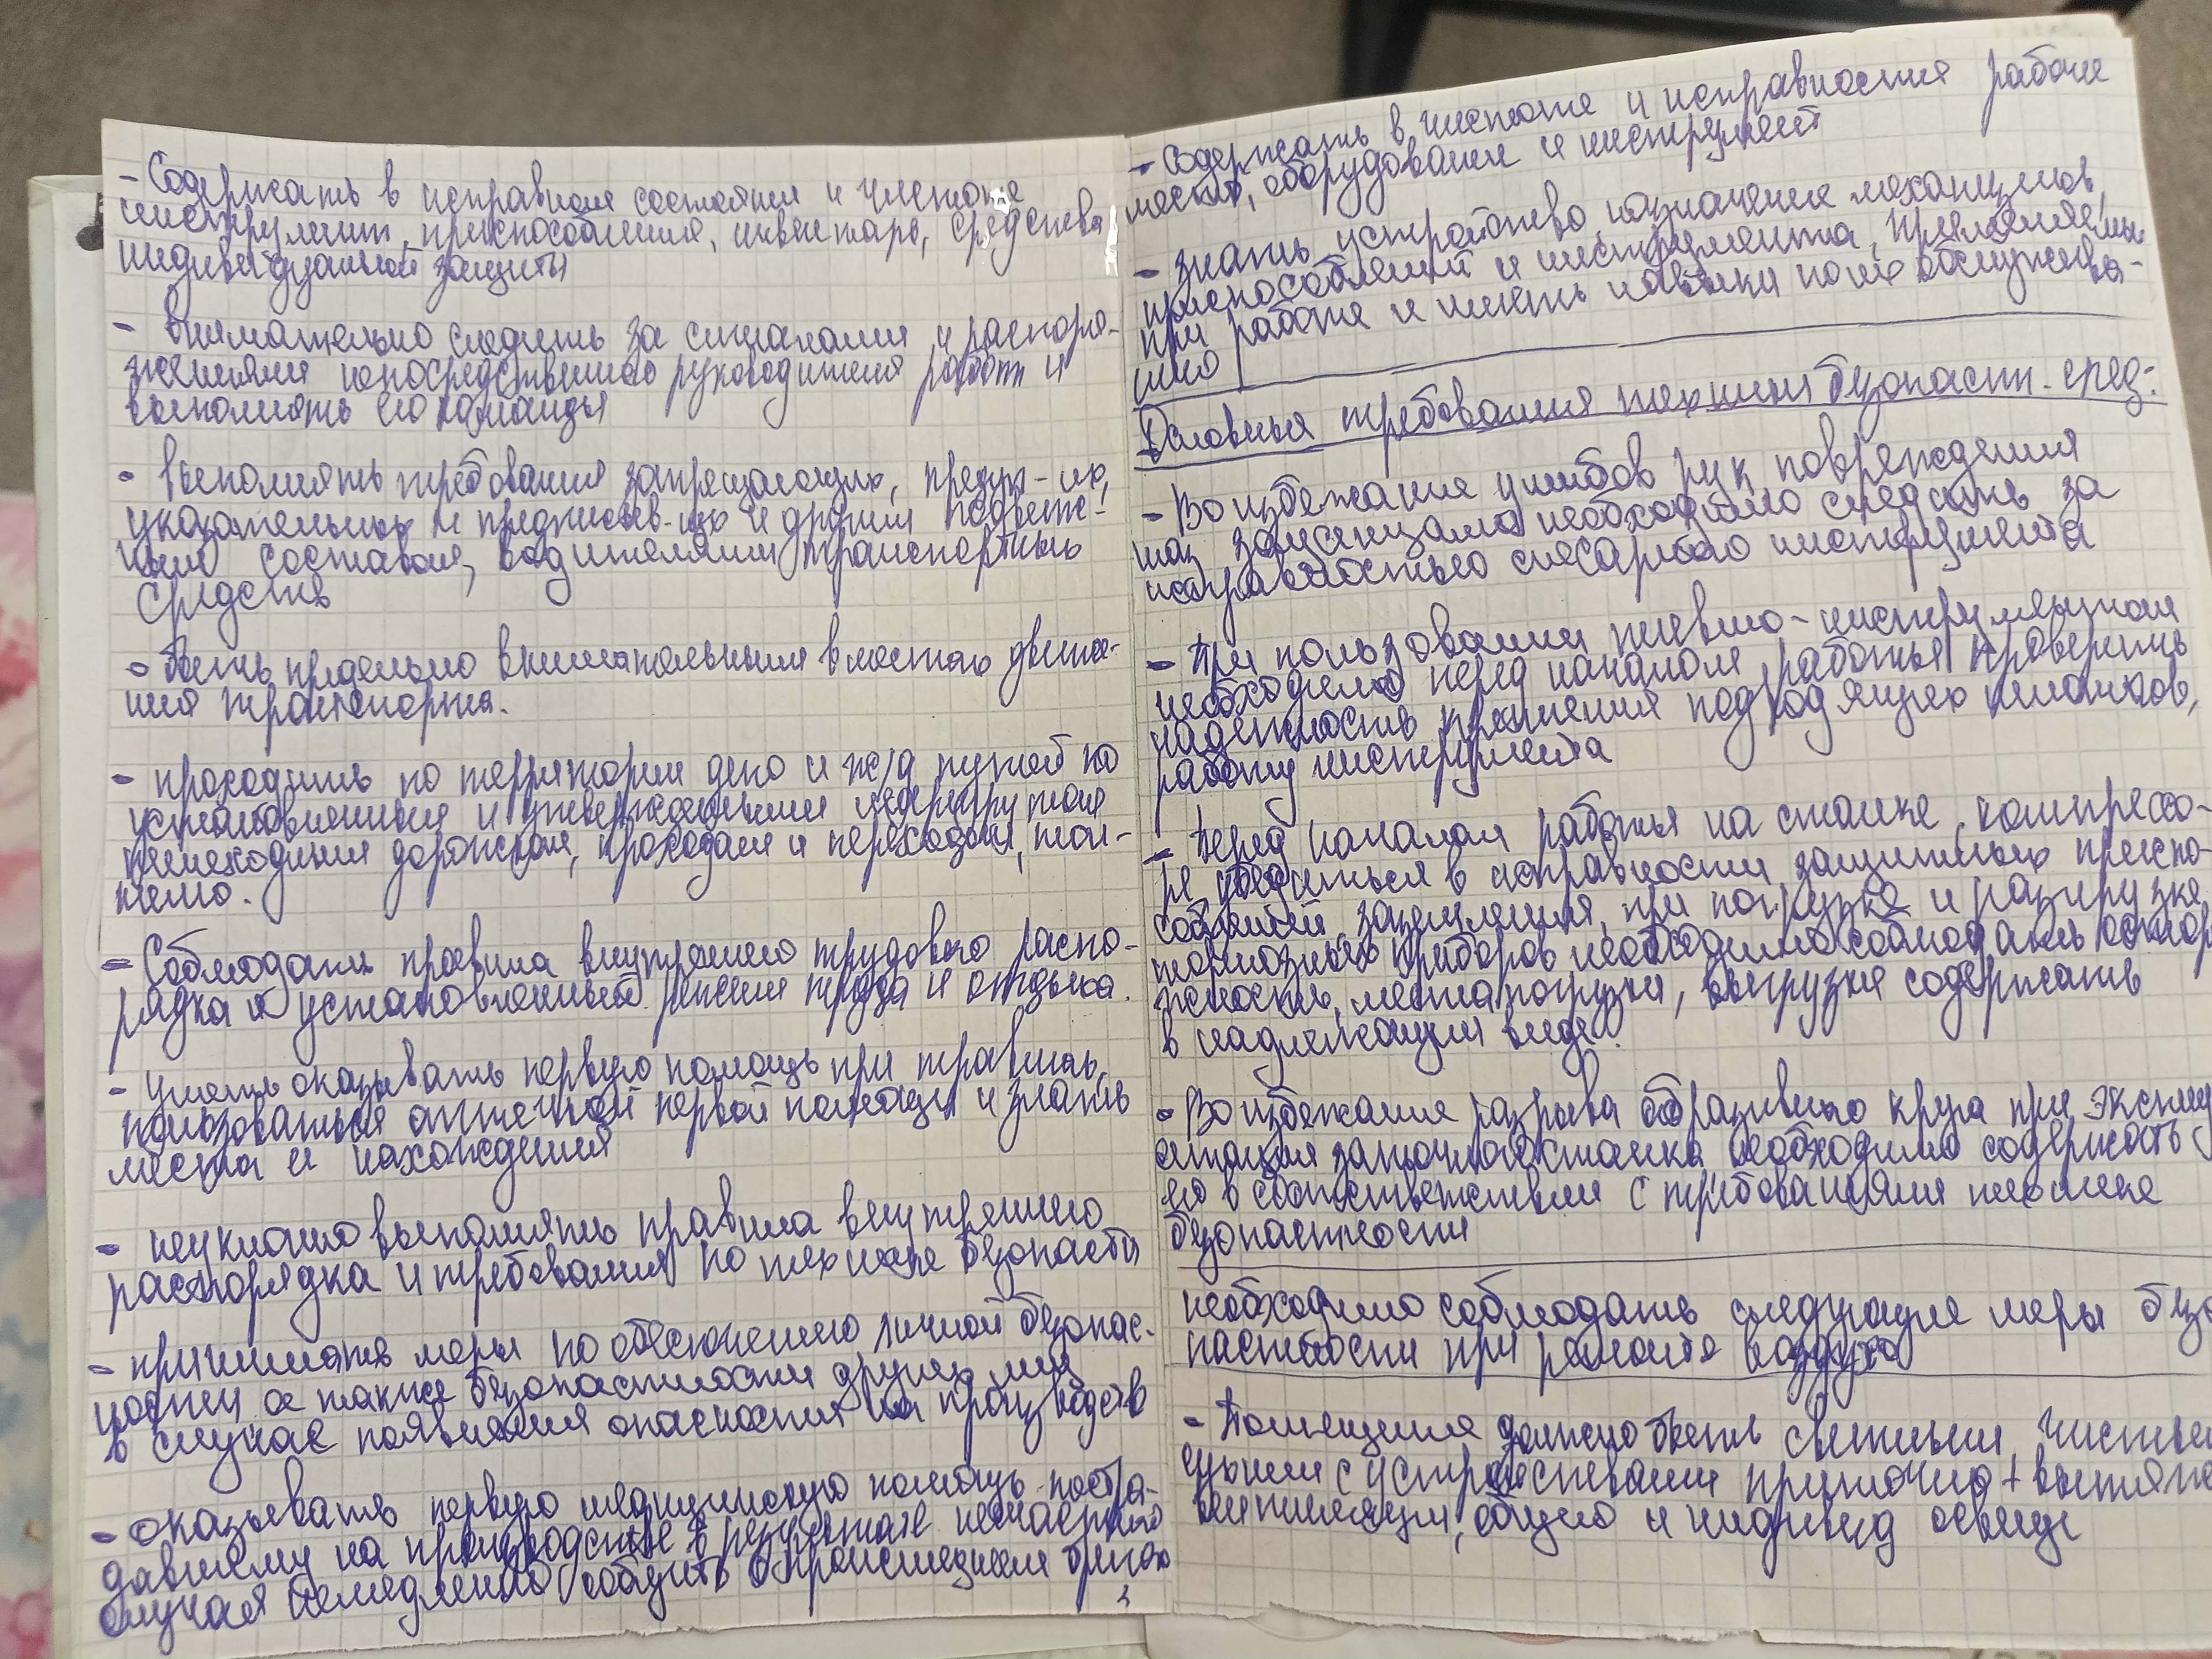 - Содержать в исправном состоянии и чистоте
инструмент, приспособления, инвентарь, средства
индивидуальной защиты
- внимательно следить за сигналами и распоря-
жениями непосредственного руководителя работ и
выполнять его команды
- выполнять требования запрещающих, предуп-их,
указательных и предписыв-их и
составом, водителями транспортных
средств
- быть предельно внимательным в местах движе-
ния транспорта.
- проходить по территории депо и ж/д путей по
установленным и утверждённым
пешеходным дорожкам, проходам и переходам,
- Соблюдать правила внутреннего трудового распо-
рядка и установленный режим труда и отдыха.
- уметь оказывать первую помощь при травмах,
пользоваться аптечкой первой помощи и знать
места и нахождения
- неуклонно выполнять правила внутреннего
распорядка и требования по технике безопасти
- принимать меры по обеспечению личной безопас-
ности а также безопастности других лиц
в случае появления опасности на производств
- оказывать первую медицинскую помощь постра-
давшему на производстве в результате несчастного
случая немедленно сообщить о происшедшем
- содержать в чистоте и исправности рабочие
места, оборудование и инструмент
- знать устройство, назначение механизмов,
приспособлений и инструмента, применяемых
при работе и иметь навыки по их обслужива-
нию
Основные требования техники безопастн. сред:
- Во избежание ушибов рук повреждения
глаз заусенцами необходимо следить за
исправностью слесарного инструмента
- при пользовании пневмо-инструментом
необходимо перед началом работы проверить
надежность крепления подходящих шлангов,
работу инструмента
- перед началом работы на станке, компрессо-
ре, убедиться в исправности защитных приспо-
соблений, заземления, при погрузке и разгрузке
тормозных приборов необходимо соблюдать осторо
жность, места погрузки, выгрузки содержать
в надлежащем виде.
- Во избежание разрыва абразивного круга при эксплу
атации заточного станка необходимо содержать
его в соответствии с требованиями технике
безопастности
необходимо соблюдать следующие меры безо
пастности при ремонте воздухо
- Помещения должно быть светлым, чистым
с устройствами приточно + вытяжн
вентиляции, общую и индивид освещ